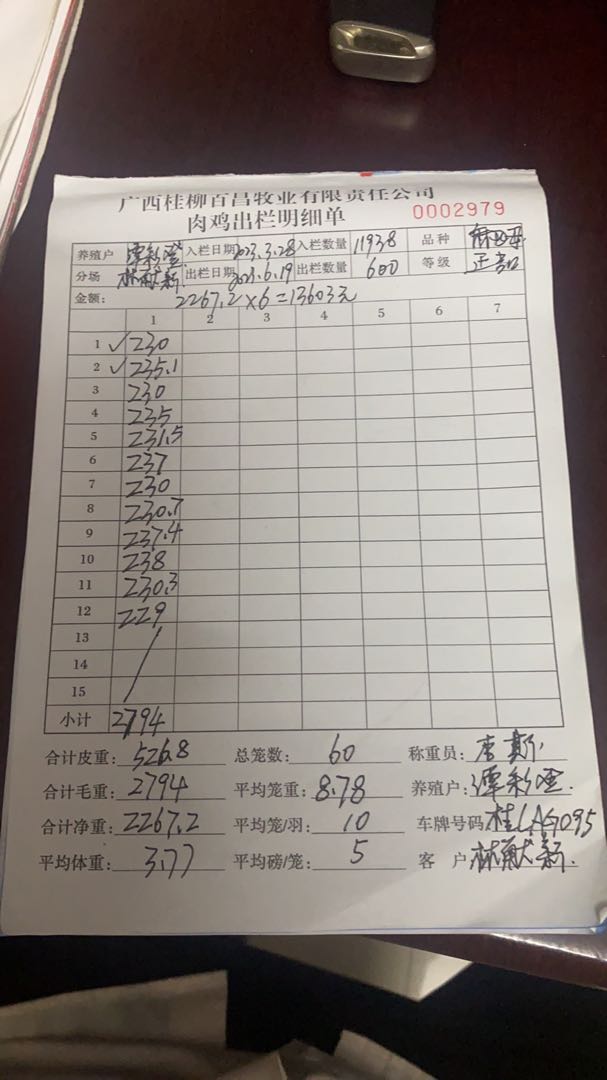 广西桂柳百昌牧业有限责任公司
肉鸡出栏明细单 0002979
养殖户 谭彩莹 入栏日期 2023.3.28 入栏数量 11938 品种
分场 林献新 出栏日期 2023.6.19 出栏数量 600 等级 正品
金额: 2267.2×6=13603元
1 2 3 4 5 6 7
1 ✓ 230
2 ✓ 235.1
3 230
4 235
5 231.5
6 237
7 230
8 230.7
9 237.4
10 238
11 230.3
12 229
13
14
15
小计 2794
合计皮重: 526.8 总笼数: 60 称重员: 唐斯
合计毛重: 2794 平均笼重: 8.78 养殖户: 谭彩莹
合计净重: 2267.2 平均笼/羽: 10 车牌号码 桂LAG095
平均体重: 3.77 平均磅/笼: 5 客户 林献新